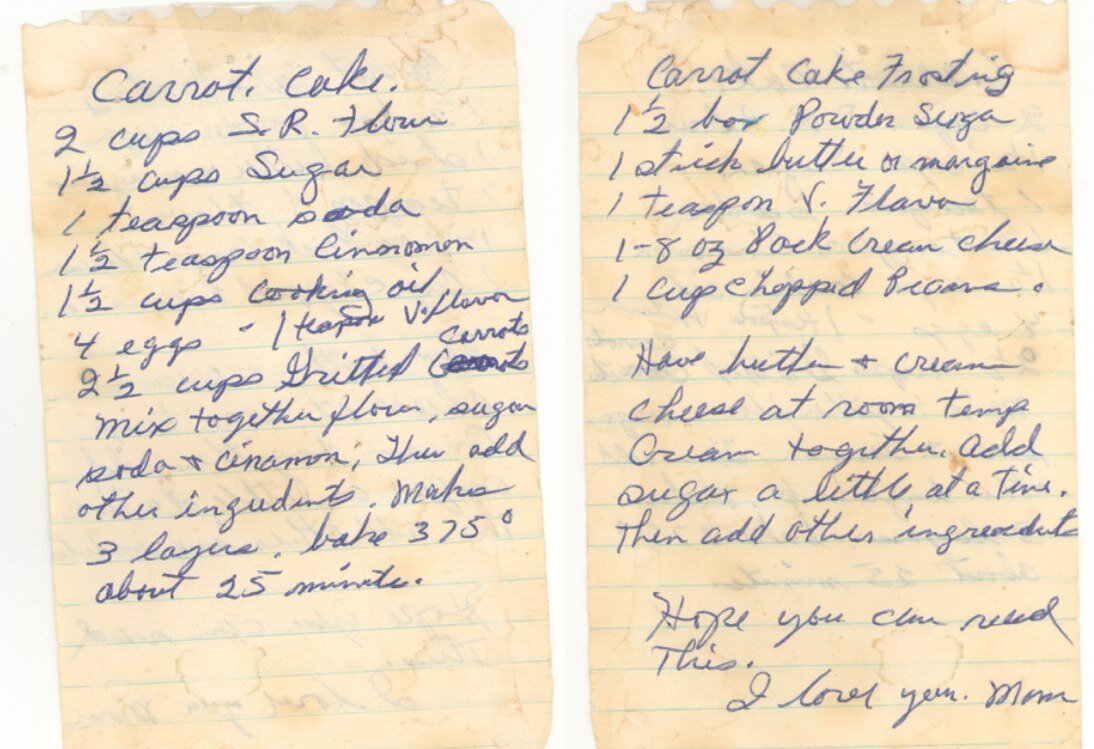 Carrot. Cake.
2 cups S. R. Flour
1 1/2 cups Sugar
1 teaspoon soda
1 1/2 teaspoon Cinnomon
1 1/2 cups cooking oil
4 eggs - 1 teaspon V. flavor
2 1/2 cups Gritted Carrots
mix together flour, sugar
soda + cinamon, Then add
other ingredients. Makes
3 layers. bake 375°
about 25 minute.
Carrot Cake Frosting
1 1/2 box Powder Suga
1 stick butter or margaine
1 Teaspon V. Flavor
1-8 oz Pack Cream cheese
1 cup Chopped Pecans.
Have butter + cream
cheese at room temp
Cream together. add
sugar a little at a time.
Then add other ingreadents
Hope you can read
This.
I love you. Mom